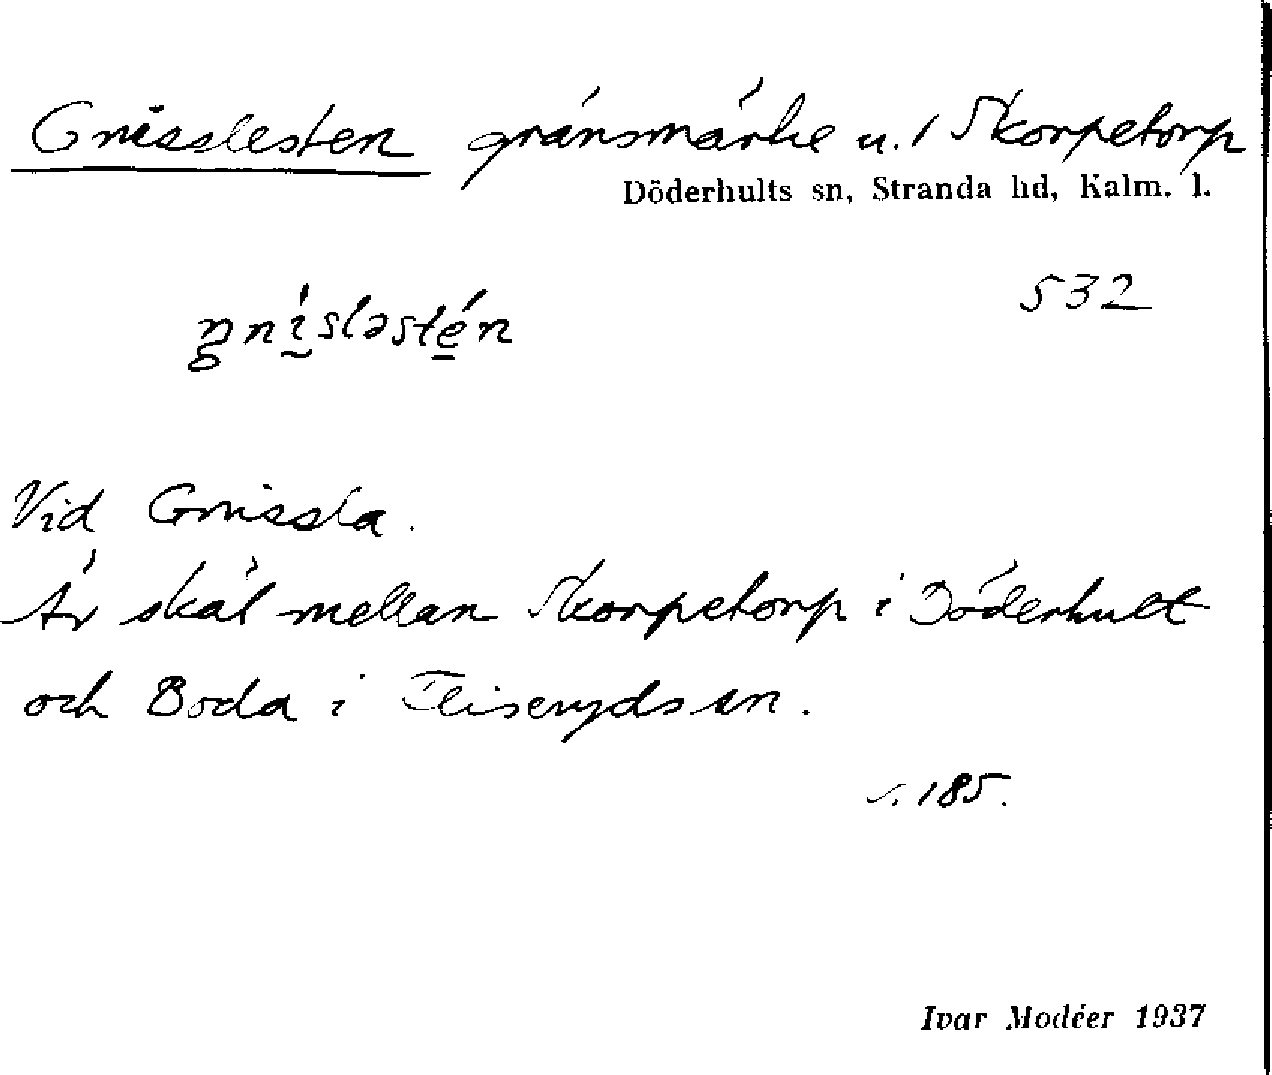 Gnisslesten gränsmärke u. 1 Skorpetorp
Döderhults sn, Stranda hd, Kalm. l.
532
gnísləstén
Vid Gnissla.
Är skäl mellan Skorpetorp i Döderhult
och Boda i Fliseryds sn.
s. 185.
Ivar Modéer 1937